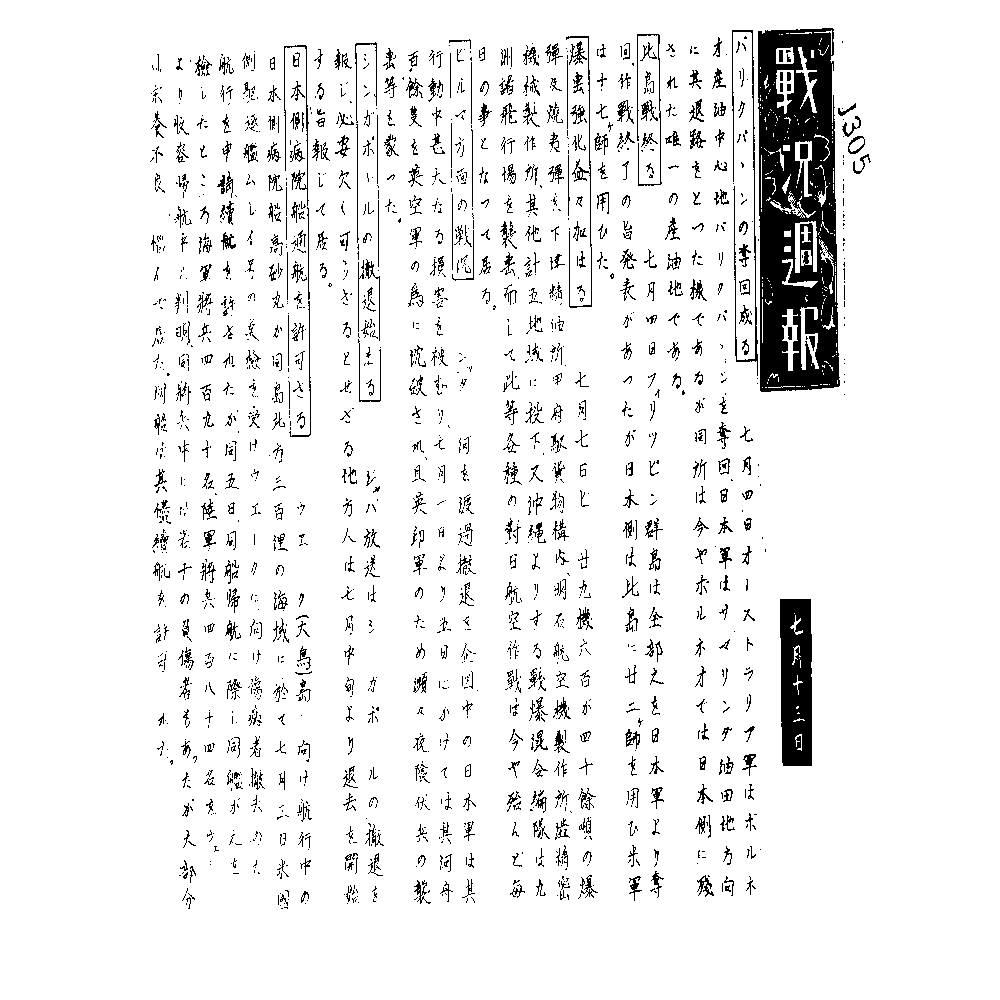 J305
戰況週報
七月十三日
バリクパパンの奪回成る 七月四日オーストラリア軍はボルネ
オ産油中心地バリクパパンを奪回、日本軍はサマリンダ油田地方向
に其退路をとつた樣であるが同所は今やボルネオでは日本側に殘
された唯一の産油地である。
比島戰終る 七月四日フイリツピン群島は全部之を日本軍より奪
回作戰終了の旨発表があつたが日本側は比島に廿二ケ師を用ひ米軍
は十七ケ師を用ひた。
爆擊強化益々加はる 七月七日 廿九機六百が四十餘噸の爆
彈及燒夷彈を下津精油所甲府駅貨物構内、明石航空機製作所、
機械製作所、其他計五地域に投下、又沖縄よりする戰爆混合編隊は九
洲諸飛行場を襲擊而して此等各種の對日航空作戰は今や殆んど每
日の事となつて居る。
ビルマ方面の戰况 河を渡過撤退を企図中の日本軍は其
行動中甚大なる損害を被むり、七月一日より五日にかけては其河舟
百餘隻を英空軍の爲に擊破され、且英印軍のため瀕々夜陰伏兵の襲
擊等を蒙つた。
シンガポールの撤退始まる ジヤバ放送はシンガポールの撤退を
報じ、必要欠く可らざるとせざる他方人は七月中旬より退去を開始
する旨報じて居る。
日本側病院船通航を許可さる ウエーク(大鳥)島へ向け航行中の
日本側病院船高砂丸が同島北方三百浬の海域に於て七月三日米國
側駆逐艦ムレイ号の臨檢を受けウエークに向け傷病者撤去のため
航行を申請、續航を許されたが同五日同船帰航に際し同艦が之を
檢したところ海軍將兵四百九十名、陸軍將兵四百八十四名をウエーク
より收容帰航中と判明、同將兵中には若干の負傷者もあつたが大部分
は栄養不良 悩んで居た。同船は其儘續航を許可された。